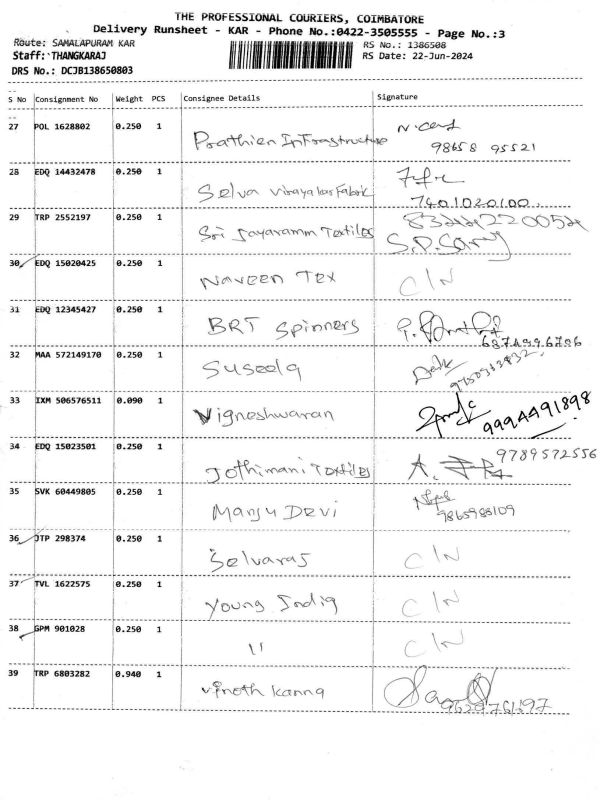 THE PROFESSIONAL COURIERS, COIMBATORE
Delivery Runsheet - KAR - Phone No.:0422-3505555 - Page No.:3
Route: SAMALAPURAM KAR RS No.: 1386508
Staff: THANGKARAJ RS Date: 22-Jun-2024
DRS No.: DCJB138650803
S No Consignment No Weight PCS Consignee Details Signature
27 POL 1628802 0.250 1 Prathien Infrastructure
98658 95521
28 EDQ 14432478 0.250 1 Selva Vinayakar Fabric
7401020100
29 TRP 2552197 0.250 1 Sri Jayaramm Textiles
30 EDQ 15020425 0.250 1 Naveen Tex C/N
31 EDQ 12345427 0.250 1 BRT Spinners
32 MAA 572149170 0.250 1 Suseela
33 IXM 506576511 0.090 1 Vigneshwaran
9994491898
34 EDQ 15023501 0.250 1 Jothimani Textiles
9789572556
35 SVK 60449805 0.250 1 Manju Devi
9865988109
36 JTP 298374 0.250 1 Selvaraj C/N
37 TVL 1622575 0.250 1 Young India C/N
38 GPM 901028 0.250 1 11 C/N
39 TRP 6803282 0.940 1 Vinoth Kanna